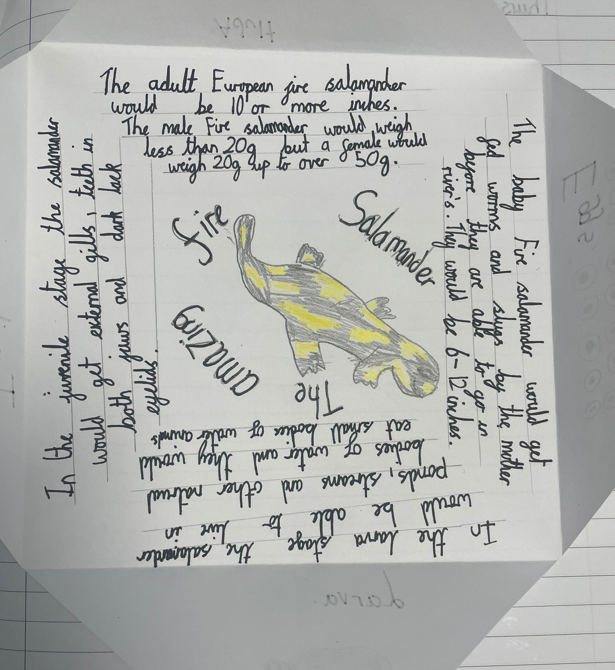 The adult European fire salamander
would be 10 or more inches.
The male Fire salamander would weigh
less than 20g but a female would
weigh 20g up to over 50g.
The baby Fire salamander would get
fed worms and slugs by the mother
before they are able to go in
river's. They would be 6-12 inches.
In the larva stage the salamander
would be able to live in
ponds, streams and other natrual
bodies of water and they would
eat small bodies of water animals
In the juvenile stage the salamander
would get external gills, teeth in
both jaws and dark back
eyelids.
The
amazing
fire
Salamander
Adult
Eggs
larva.